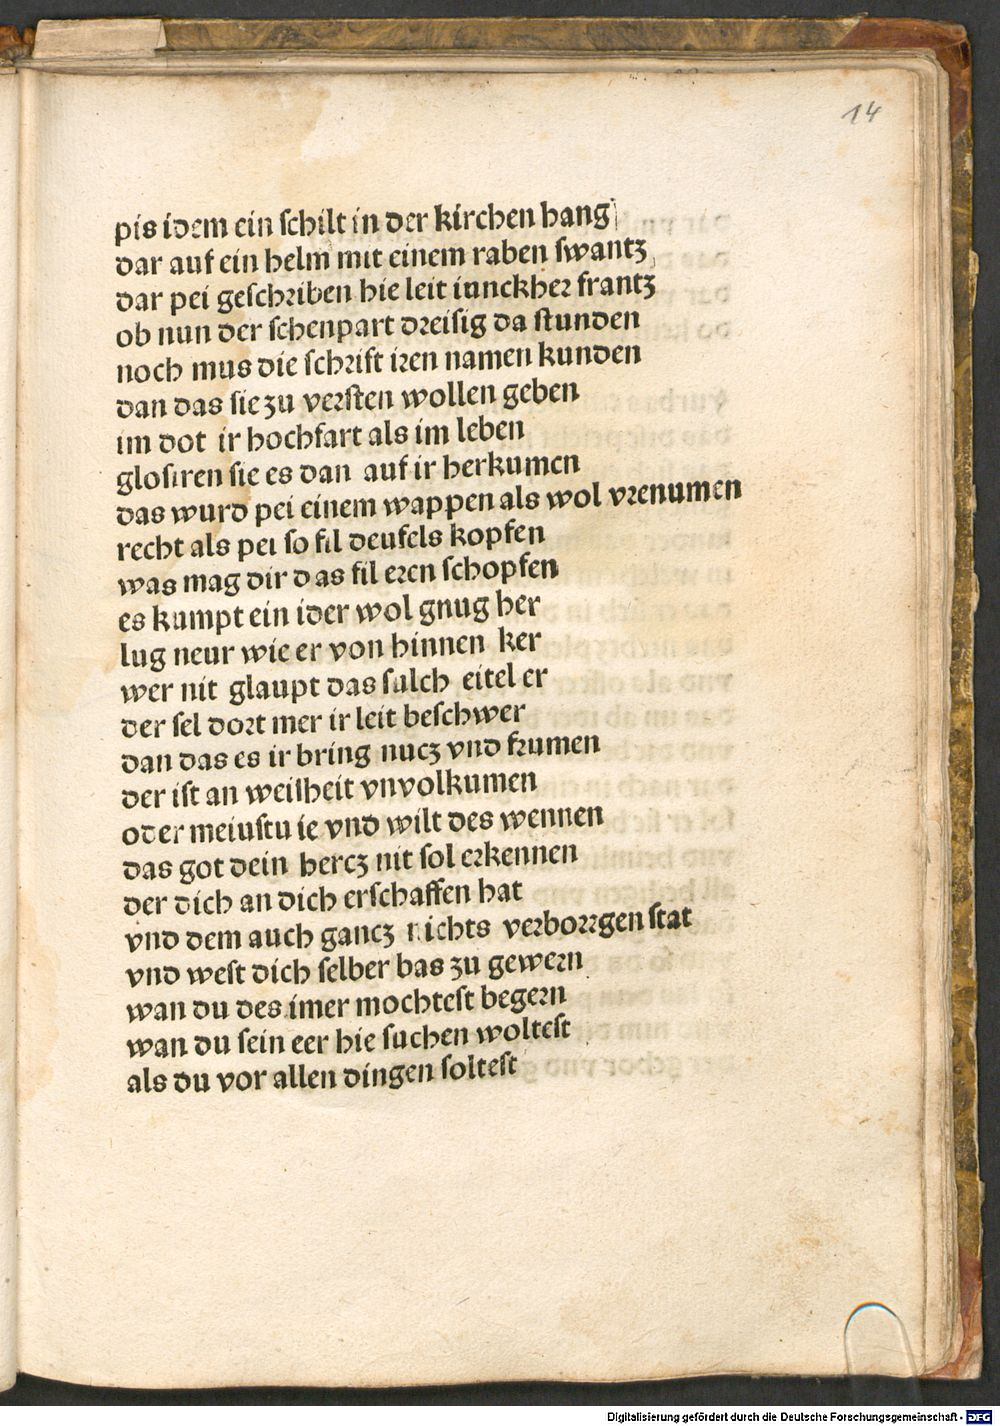 14
pis idem ein schilt in der kirchen hang
dar auf ein helm mit einem raben swantz
dar pei geschriben hie leit iunckher frantz
ob nun der schenpart dreisig da stunden
noch mus die schrift iren namen kunden
dan das sie zu versten wollen geben
im dot ir hochfart als im leben
glosiren sie es dan auf ir herkumen
das wurd pei einem wappen als wol vrenumen
recht als pei so fil deufels kopfen
was mag dir das fil eren schopfen
es kumpt ein ider wol gnug her
lug neur wie er von hinnen ker
wer nit glaupt das sulch eitel er
der sel dort mer ir leit beschwer
dan das es ir bring nucz vnd frumen
der ist an weisheit vnvolkumen
oder meiustu ie vnd wilt des wennen
das got dein hercz nit sol erkennen
der dich an dich erschaffen hat
vnd dem auch gancz nichts verborrgen stat
vnd west dich selber bas zu gewern
wan du des imer mochtest begern
wan du sein eer hie suchen woltest
als du vor allen dingen soltest
Digitalisierung gefördert durch die Deutsche Forschungsgemeinschaft - DFG